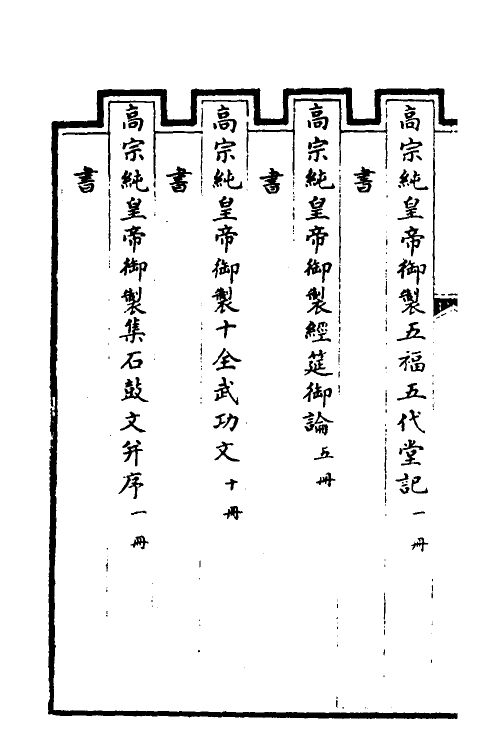 高宗純皇帝御製五福五代堂記一冊
書
高宗純皇帝御製經筵御論五冊
書
高宗純皇帝御製十全武功文十冊
書
高宗純皇帝御製集石鼓文并序一冊
書